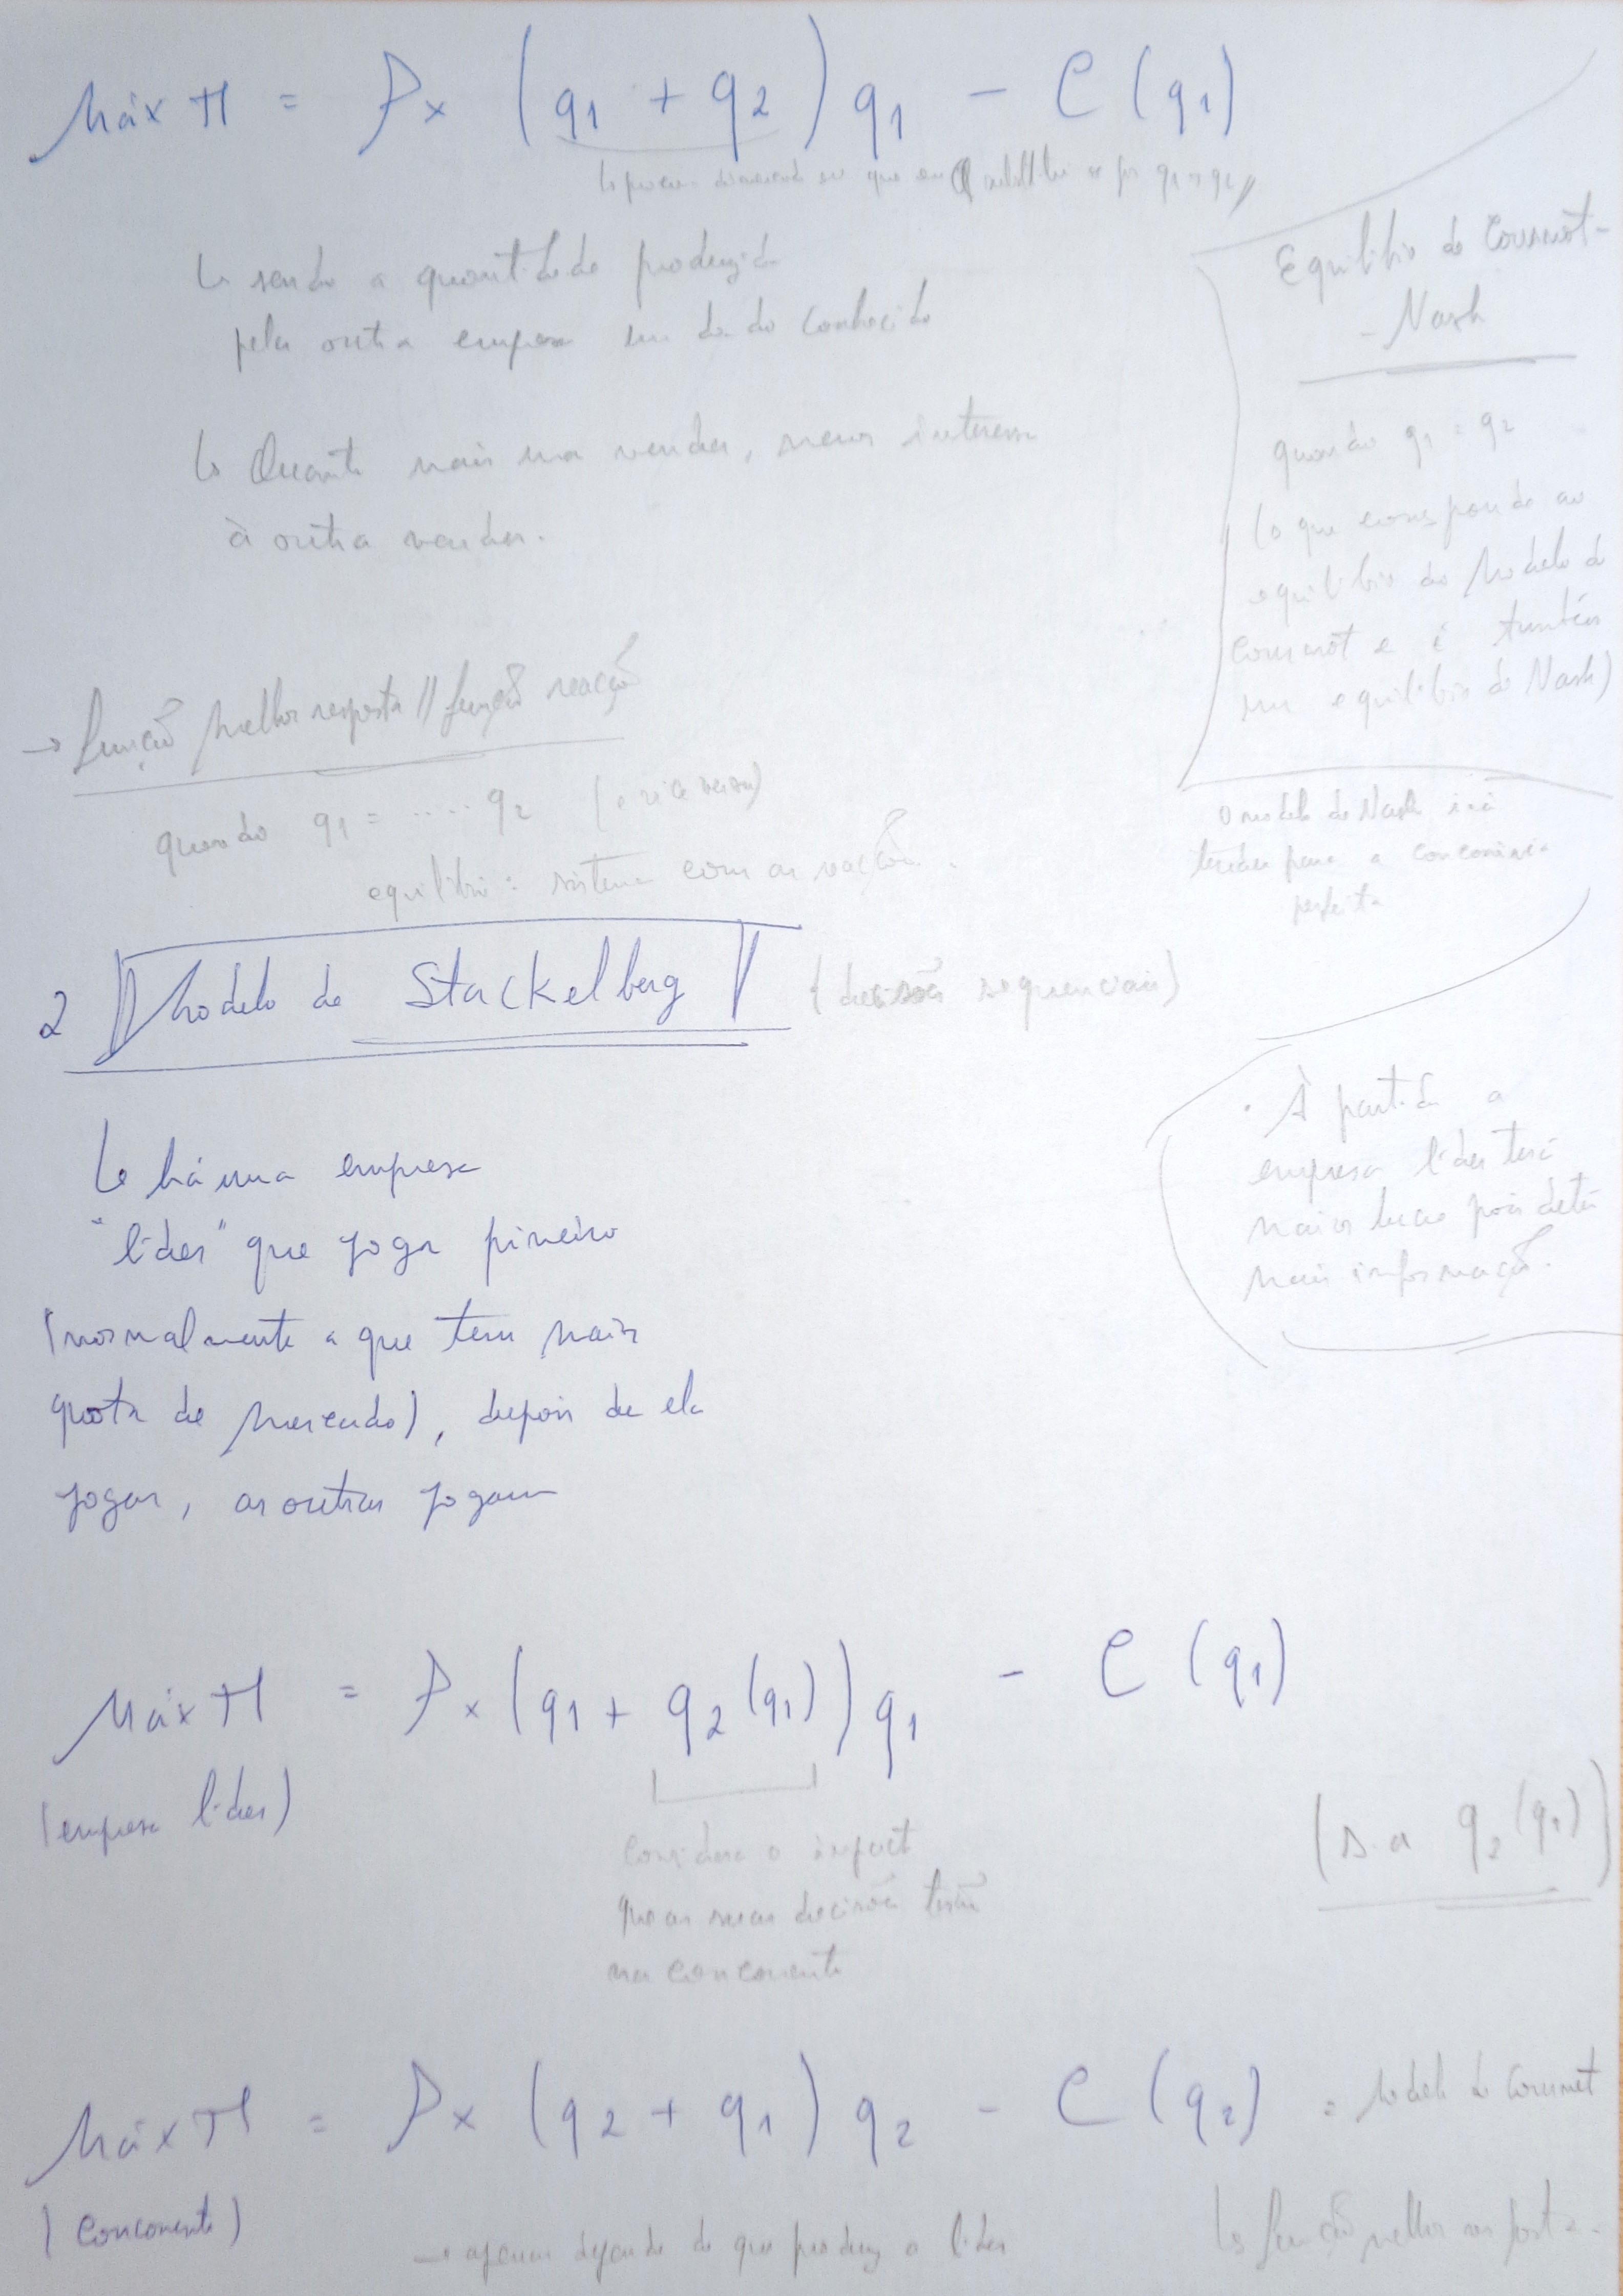 Máx π = P x (q1 + q2) q1 - C (q1)
↳ procura
que em Q substitui se por q1 + q2 //
↳ sendo a quantidade produzida
pela outra empresa um dado conhecido
↳ Quanto mais uma vender, menos interessa
à outra vender.
→ função melhor resposta // função reação
quando q1 = ..... q2 (e vice versa)
equilíbrio: sistema com as reações.
Equilíbrio de Cournot-
- Nash
quando q1 = q2
(o que corresponde ao
equilíbrio do Modelo de
Cournot e é também
um equilíbrio de Nash)
O modelo de Nash irá
tender para a concorrência
perfeita
2 Modelo de Stackelberg (decisões sequenciais)
↳ há uma empresa
"líder" que joga primeiro
(normalmente a que tem mais
quota de mercado), depois de ela
jogar, as outras jogam
• À partida a
empresa líder terá
maior lucro pois detém
mais informação.
Máx π = P x (q1 + q2 (q1)) q1 - C (q1)
(empresa líder)
considera o impacto
que as suas decisões terão
na concorrente
(s.a q2 (q1))
Máx π = P x (q2 + q1) q2 - C (q2) = Modelo de Cournot
(concorrente)
↳ função melhor resposta.
→ apenas depende do que produz a líder